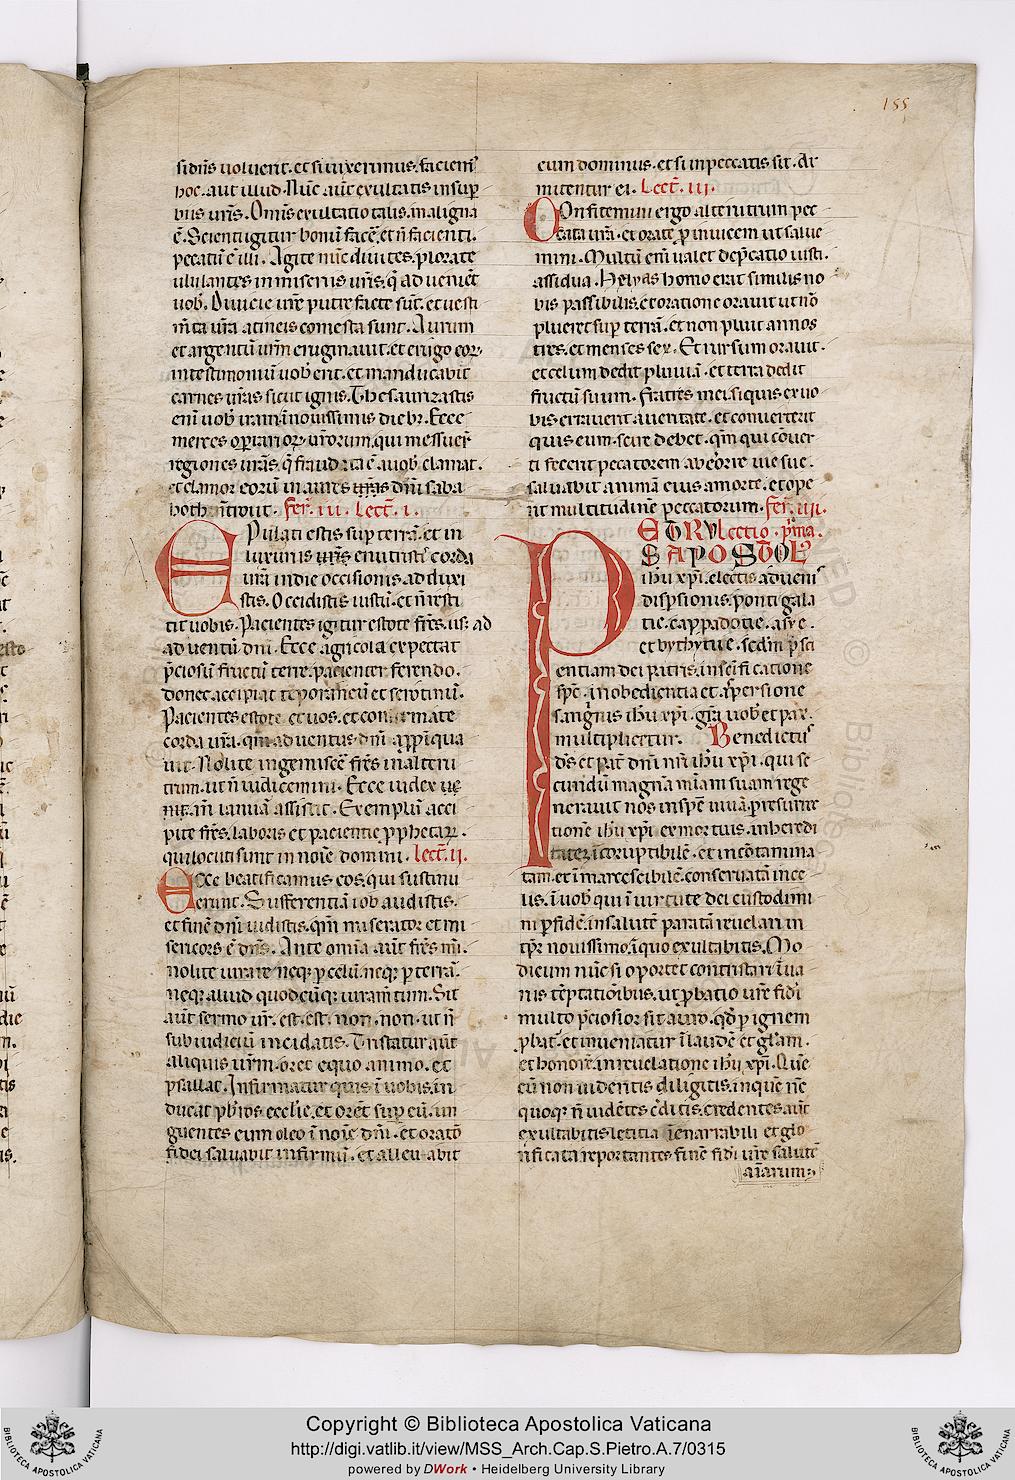 155
si dn̄s uoluerit. et si uixerimus. faciem̄
hoc. aut illud. Nūc aūt exultatis in sup
biis ur̄is. Om̄is exultatio talis. maligna
ē. Scienti igitur bonū facē. et n̄ facienti.
peccatū ē illi. Agite nūc diuites. plorate
ululantes in miseriis ur̄is. q̄ aduenient
uob. Diuicie ur̄e putre facte sūt. et uesti
m̄ta ur̄a a tineis comesta sunt. Aurum
et argentū ur̄m eruginauit. et erugo eor.
in testimoniū uob erit. et manducabit
carnes ur̄as sicut ignis. Thesaurizastis
enī uob iram ī nouissimis dieb. Ecce
merces opariorꝝ ur̄orum. qui messuer̄
regiones ur̄as. q̄ fraudata ē a uob clamat.
et clamor eorū in aures dn̄i saba
hoth ītroiuit. fer̄. iii. Lect̄. i.
Epulati estis sup terrā. et in
luxuriis enutristis corda
ur̄a in die occisionis. adduxi
stis. Occidistis iustū. et n̄ resti
tit uobis. Pacientes igitur estote fr̄es. us. ad
aduentū dn̄i. Ecce agricola expectat
p̄ciosū fructū terre. pacienter ferendo.
donec accipiat teporaneū et serotinū.
Pacientes estote et uos. et confirmate
corda ur̄a. qm̄ aduentus dn̄i appīqua
uit. Nolite ingemiscē fr̄es in alteru
trum. ut n̄ iudicemini. Ecce iudex
an̄ ianuā assistit. Exemplū acci
pite fr̄es. laboris et pacientie. pphetaꝝ.
qui locuti sunt in noīe domini. lect̄. ii.
Ecce beatificamus eos. qui sustinu
erunt. Sufferentiā iob audistis.
et finē dn̄i uidistis. qm̄ miserator et mi
sericors ē dn̄s. Ante omīa aūt fr̄es mī.
nolite iurare neqꝫ p celū. neqꝫ p terrā.
neqꝫ aliud quodcūqꝫ iuram̄tum. Sit
aūt sermo ur̄. est. est. non. non. ut n̄
sub iudiciū incidatis. Tristatur aūt
aliquis ur̄m. oret equo animo. et
psallat. Infirmatur quis ī uobis. in
ducat pb̄ros eccl̄ie. et orēt sup eū. un
guentes eum oleo ī noīe dn̄i. et oratō
fidei saluabit infirmū. et alleuabit
eum dominus. et si in peccatis sit. di
mitentur ei. Lect̄. iii.
Confitemini ergo alterutrum pec
cata ur̄a. et orate p inuicem ut salue
mini. Multū enī ualet dep̄catio iusti.
assidua. Helyas homo erat similis no
bis passibilis. et oratione orauit ut nō
plueret sup terrā. et non pluit annos
tres. et menses sex. Et rursum orauit.
et celum dedit pluuiā. et terra dedit
fructū suum. Fratres mei si quis ex uo
bis errauerit a ueritate. et conuerterit
quis eum. scire debet. qm̄ qui cōuer
ti fecerit pecatorem ab eōrre uie sue.
saluabit animā eius a morte. et ope
rit multitudinē peccatorum. fer̄. iiii.
PETRUS lectio. p̄ma.
APOSTOL
ihū xp̄i. electis adueni
dispsionis. ponti gala
tie. cappadotie. asye.
et bythynie. sedm p̄sci
entiam dei patris. in scīficatione
sp̄c. in obedientia et aspersione
sanguis ihū xp̄i. gr̄a uob et pax.
multiplicetur. Benedictus
ds̄ et pat̄ dn̄i nr̄i ihū xp̄i. qui se
cundū magnā mīam suam rege
nerauit nos in spē uiuā. p resurre
tionē ihū xp̄i ex mortuis. in heredi
tatē īcoruptibilē. et incōtamina
tam. et ī marcescibilē. conseruatā in ce
lis. ī uob qui ī uirtute dei custodimi
ni p fidē. in salutē paratā reuelari in
tp̄r nouissimo. ī quo exultabitis. Mo
dicum nūc si oportet contristari ī ua
riis tēptatiōibus. ut pbatio ur̄e fidi
multo p̄ciosior sit auro. qd̄ p ignem
pbat̄. et inueniatur ī laudē et gl̄am.
et honorē. in reuelatione ihū xp̄i. Quē
cū non uideritis diligitis. in quē nc̄
quoqꝫ n̄ uidētes c̄ditis. credentes aūt
exultabitis letitia īenarrabili et glo
rificata reportantes finē fidi ur̄e salutē
aīarum
Copyright © Biblioteca Apostolica Vaticana
http://digi.vatlib.it/view/MSS_Arch.Cap.S.Pietro.A.7/0315
powered by DWork • Heidelberg University Library
BIBLIOTECA APOSTOLICA VATICANA
BIBLIOTECA APOSTOLICA VATICANA